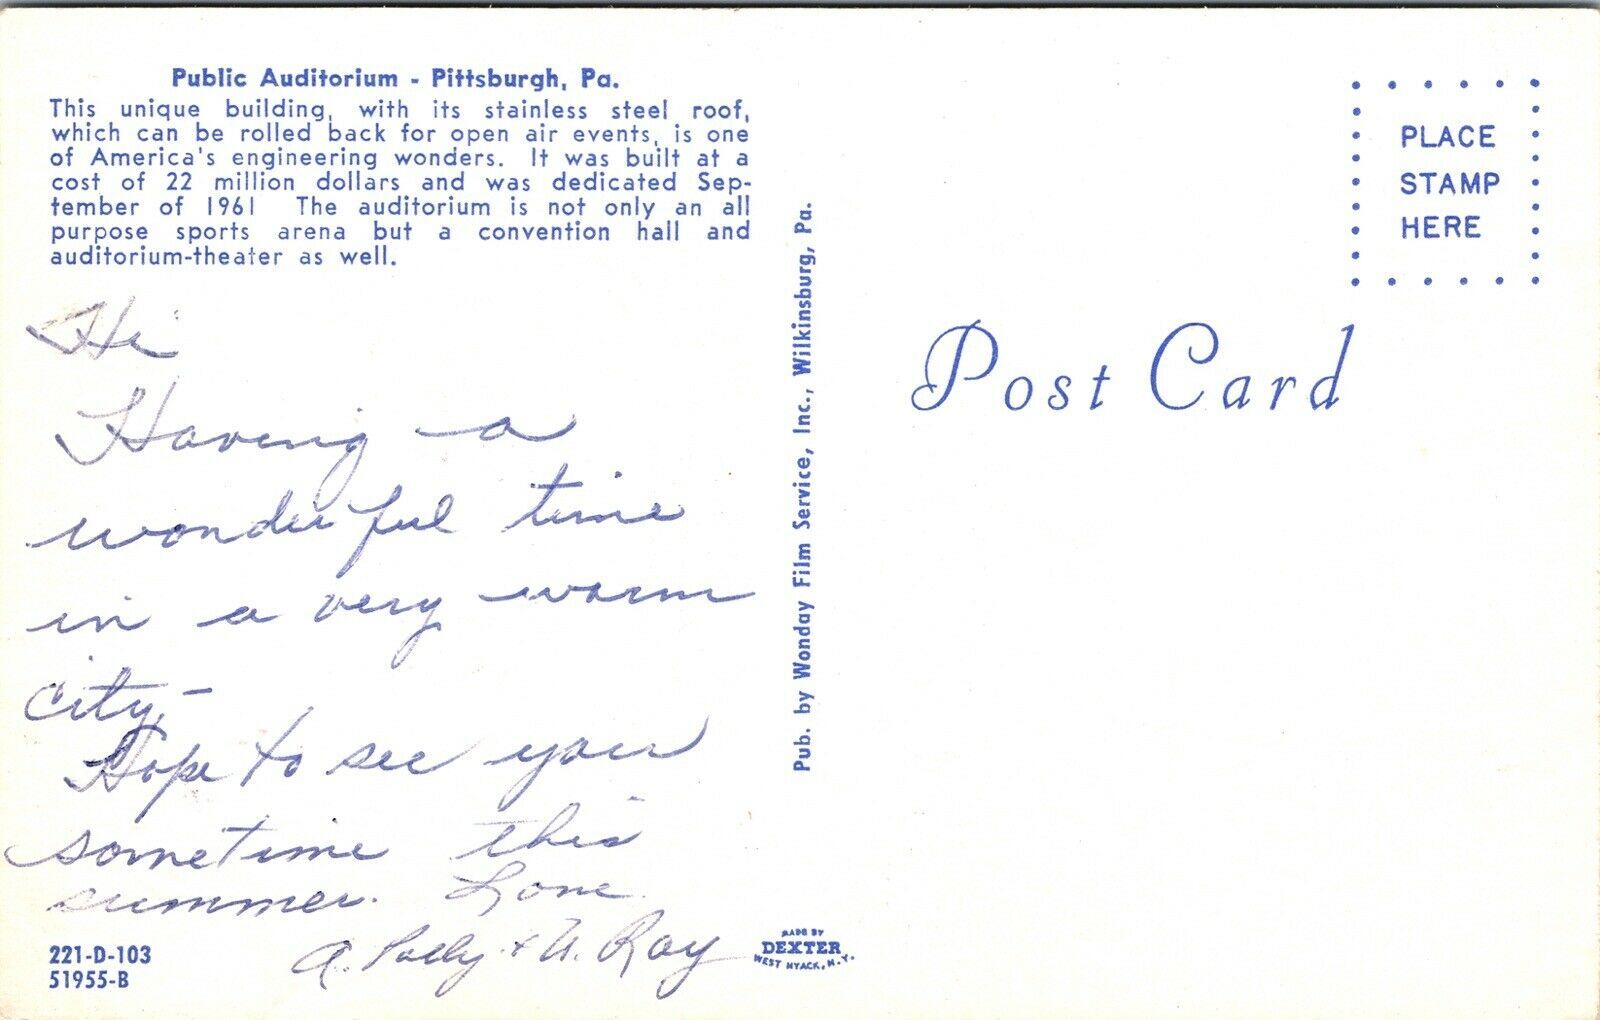 Public Auditorium - Pittsburgh, Pa.
This unique building, with its stainless steel roof,
which can be rolled back for open air events, is one
of America's engineering wonders. It was built at a
cost of 22 million dollars and was dedicated Sep-
tember of 1961 The auditorium is not only an all
purpose sports arena but a convention hall and
auditorium-theater as well.
Hi
Having a
wonderful time
in a very warm
city,-
Hope to see you
sometime this
summer. Love
A. Polly + U. Ray
221-D-103
51955-B
Pub. by Wonday Film Service, Inc., Wilkinsburg, Pa.
MADE BY
DEXTER
WEST NYACK, N.Y.
PLACE
STAMP
HERE
Post Card